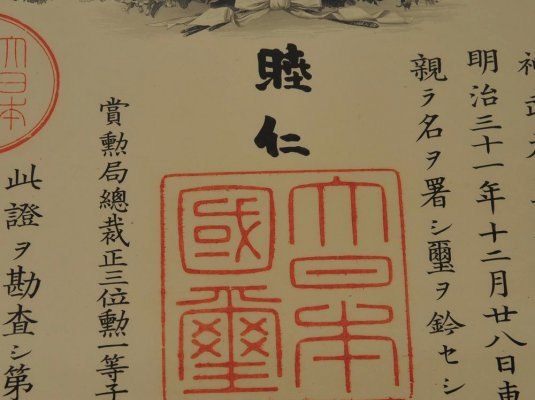 神武天
明治三十一年十二月廿八日東
親ラ名ヲ署シ璽ヲ鈐セシ
睦仁
大日本
國璽
賞勲局總裁正三位勲一等子
此證ヲ勘査シ第
大日本